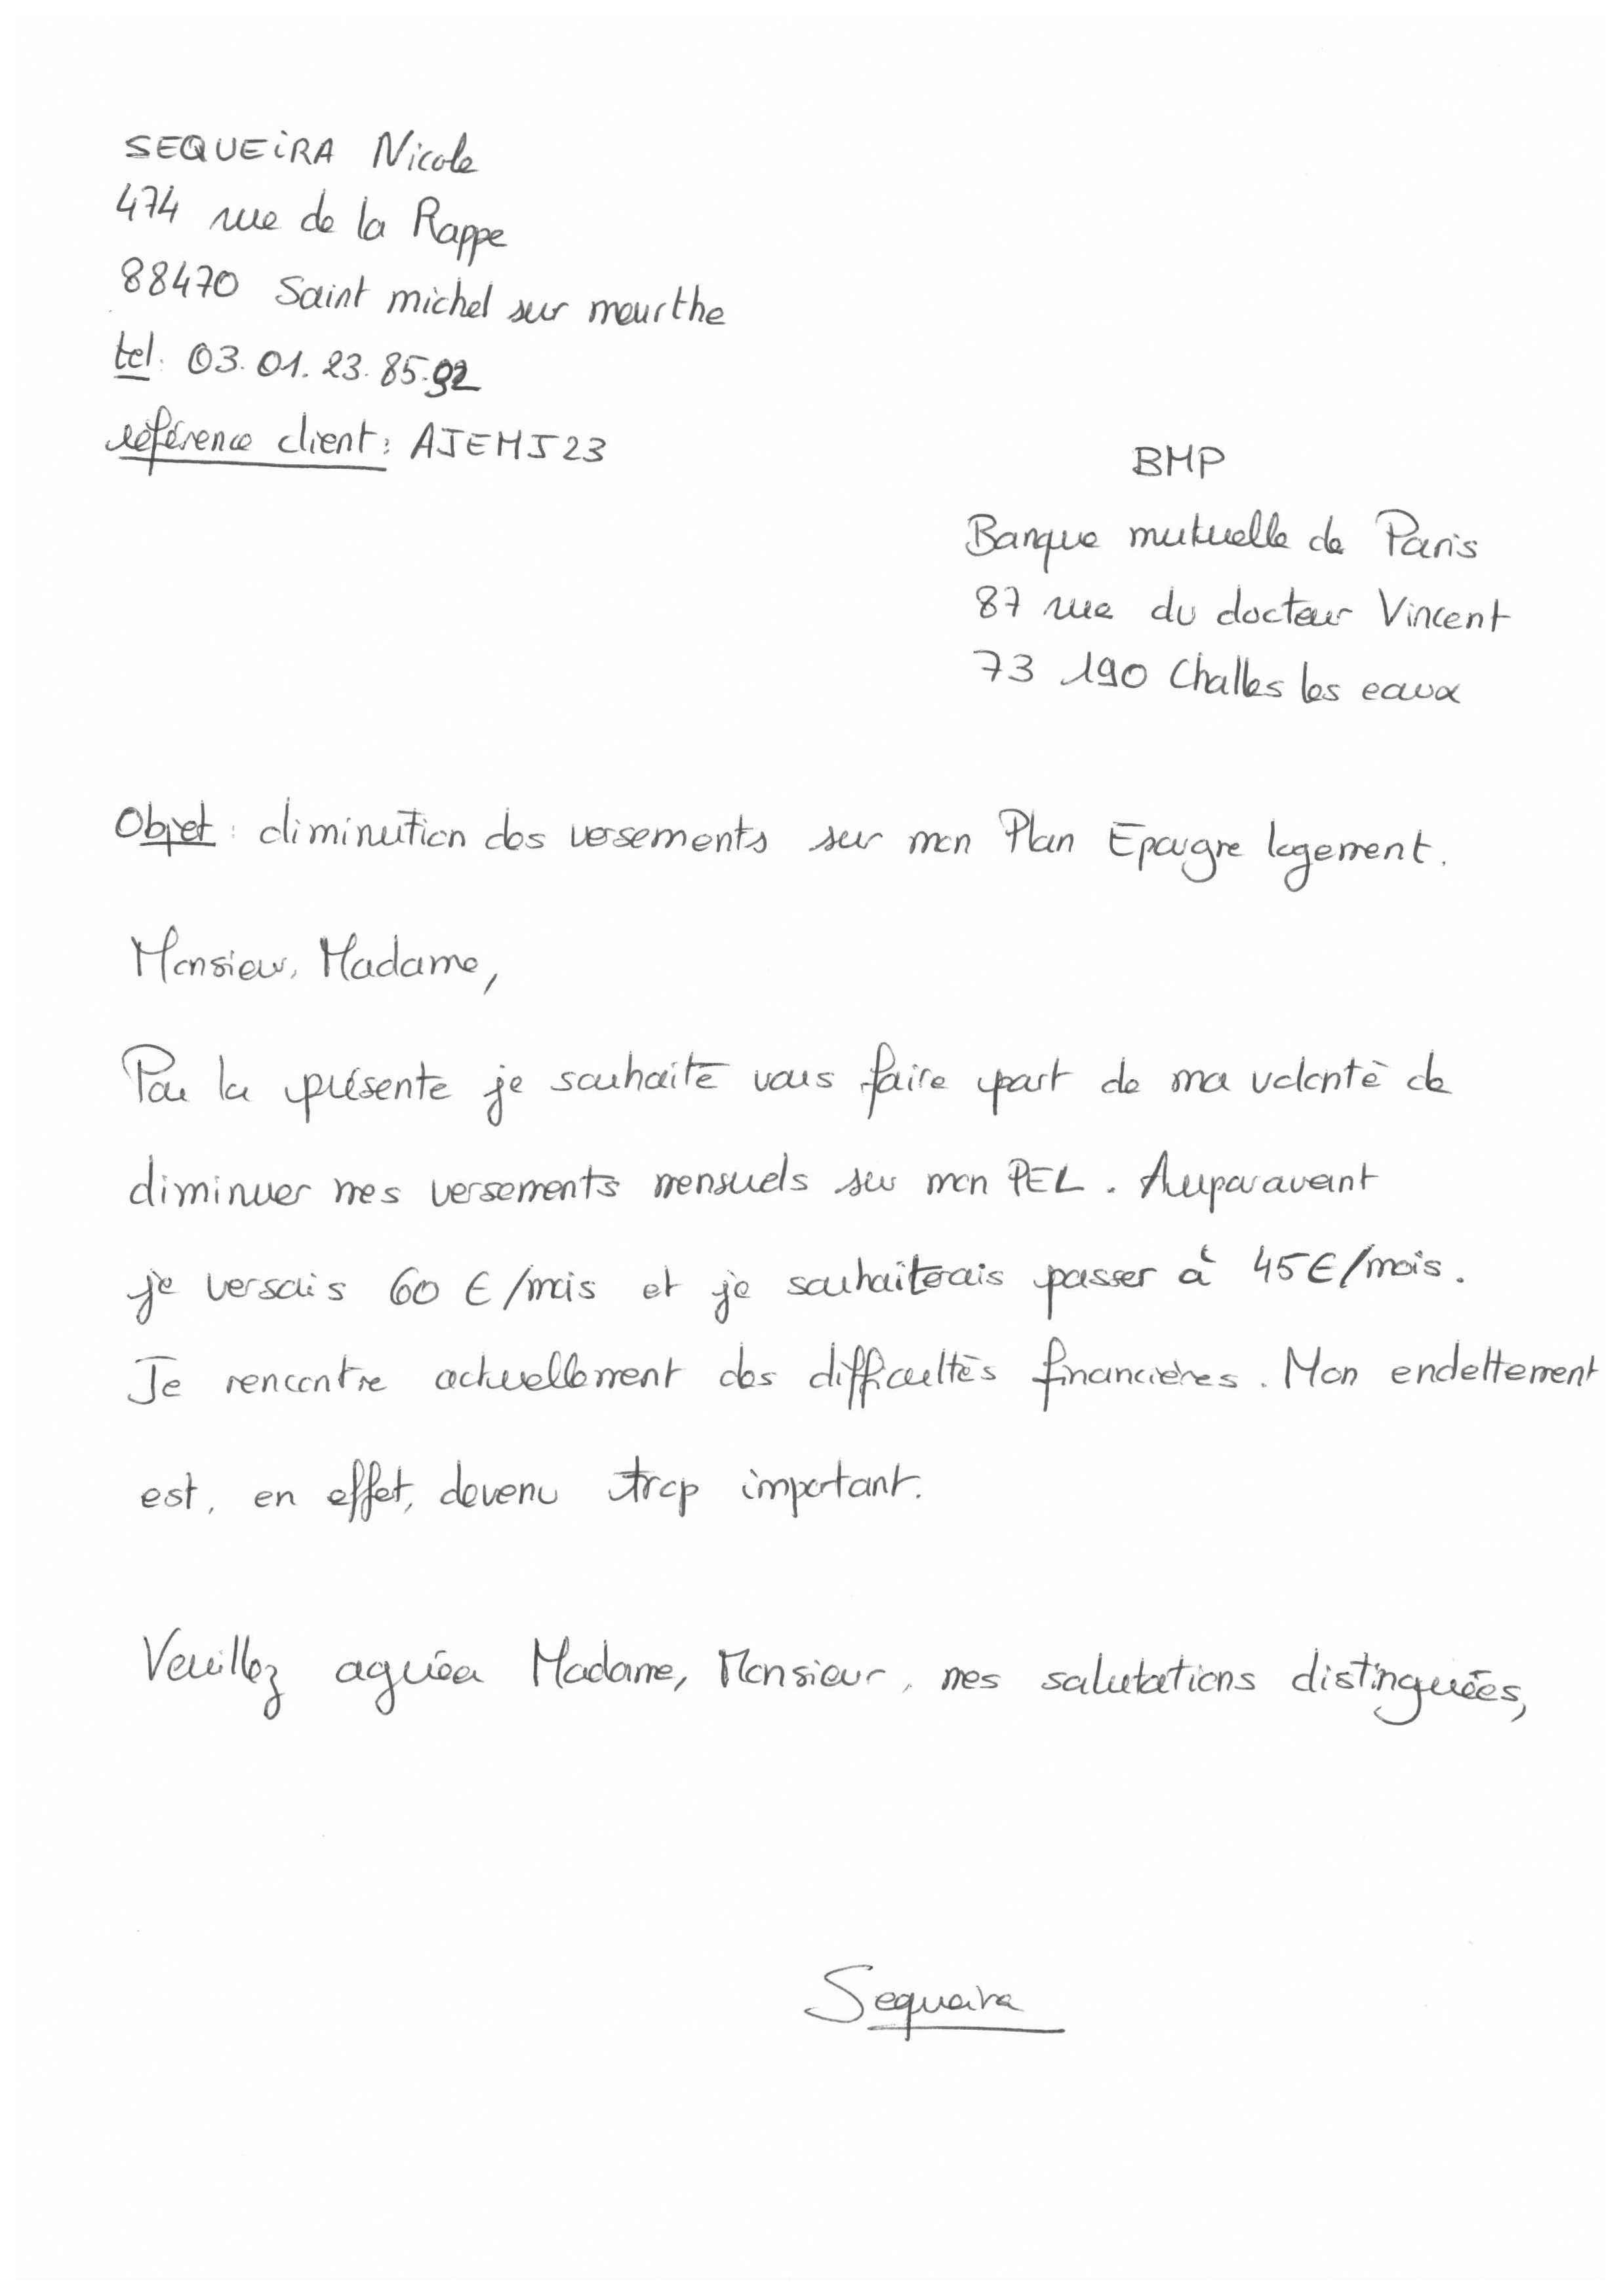 SEQUEIRA Nicole
474 rue de la Rappe
88470 Saint michel sur meurthe
tel: 03.01.23.85.92
référence client: AJEMJ23
BMP
Banque mutuelle de Paris
87 rue du docteur Vincent
73 190 Challes les eaux
Objet: diminution des versements sur mon Plan Epargne logement.
Monsieur, Madame,
Par la présente je souhaite vous faire part de ma volonté de
diminuer mes versements mensuels sur mon PEL. Auparavant
je versais 60 €/mois et je souhaiterais passer à 45€/mois.
Je rencontre actuellement des difficultés financières. Mon endettement
est, en effet, devenu trop important.
Veuillez agréer Madame, Monsieur, mes salutations distinguées,
Sequeira